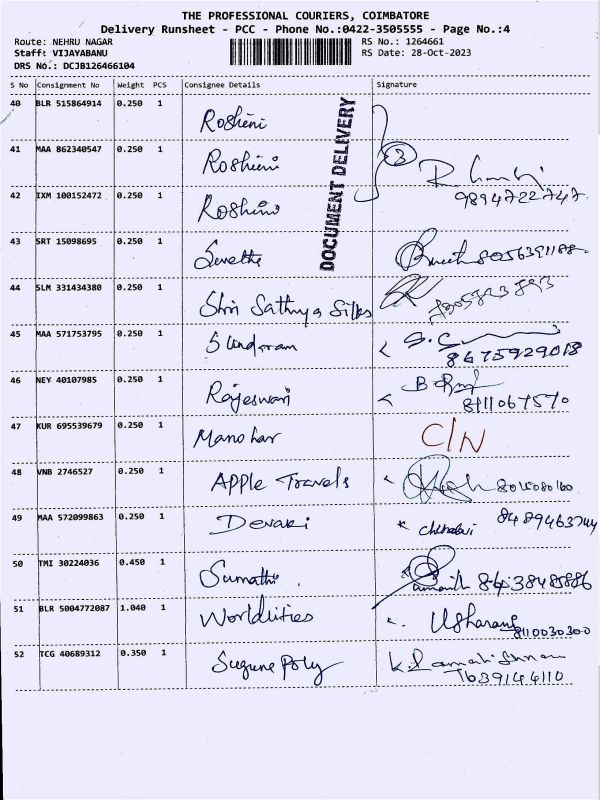 THE PROFESSIONAL COURIERS, COIMBATORE
Delivery Runsheet - PCC - Phone No.:0422-3505555 - Page No.:4
Route: NEHRU NAGAR RS No.: 1264661
Staff: VIJAYABANU RS Date: 28-Oct-2023
DRS No.: DCJB126466104
S No Consignment No Weight PCS Consignee Details Signature
40 BLR 515864914 0.250 1 Roshini
DOCUMENT DELIVERY
3
41 MAA 862340547 0.250 1 Roshini
9894722747
42 IXM 100152472 0.250 1 Roshini
43 SRT 15098695 0.250 1 Swetha 8056391188
44 SLM 331434380 0.250 1 Shri Sathya Silks
45 MAA 571753795 0.250 1 Sundaram
8675929018
46 NEY 40107985 0.250 1 Rajeswari
8111067570
47 KUR 695539679 0.250 1 Manohar C/N
48 VNB 2746527 0.250 1 APPLE Travels
49 MAA 572099863 0.250 1 Devaki 8489463744
50 TMI 30224036 0.450 1 Sumathi
51 BLR 5004772087 1.040 1 Worldtities Usharani
8110030300
52 TCG 40689312 0.350 1 Suguna Poly K. Ramakrishnan
7639144110